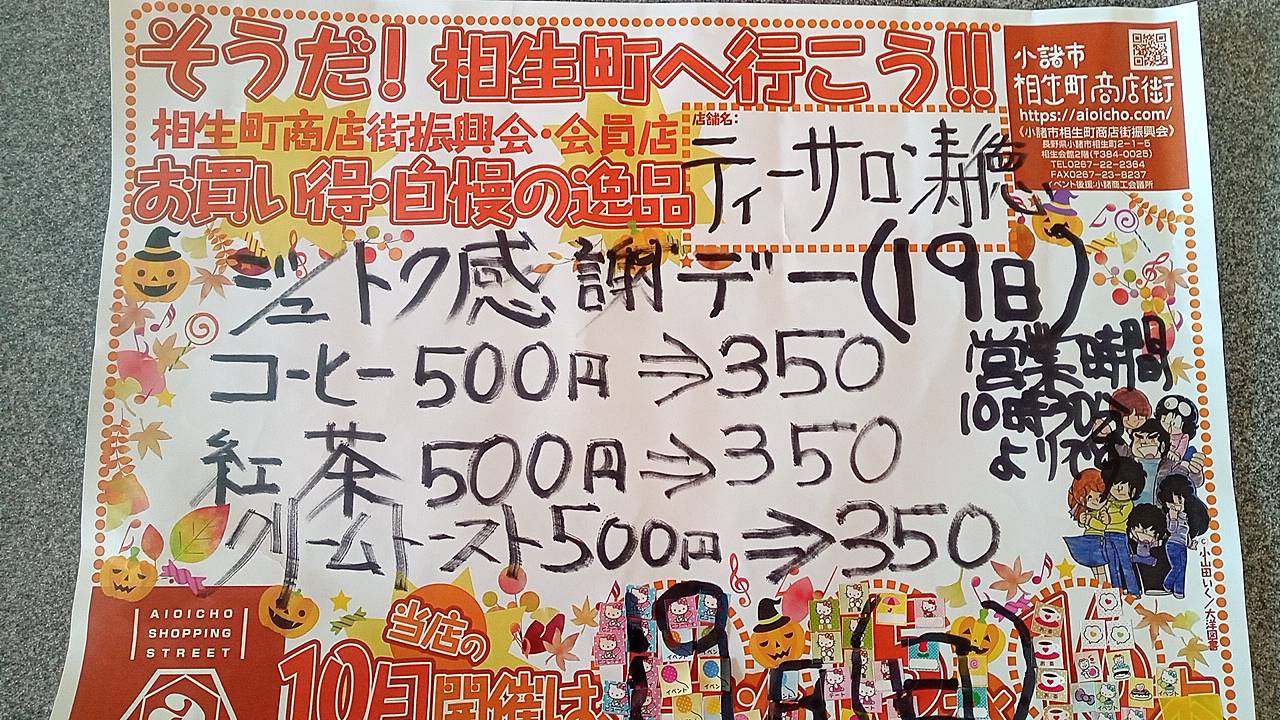 そうだ！相生町へ行こう!!
相生町商店街振興会・会員店
お買い得・自慢の逸品
店舗名：
ティーサロン寿徳
小諸市
相生町商店街
https://aioicho.com/
《小諸市相生町商店街振興会》
長野県小諸市相生町2-1-5
相生会館2階(〒384-0025)
TEL0267-22-2364
FAX0267-23-8237
イベント後援:小諸商工会議所
ジュトク感謝デー(19日)
コーヒー500円⇒350
紅茶500円⇒350
クリームトースト500円⇒350
営業時間
10時30分
より
©小山田いく／大洋図書
AIOICHO
SHOPPING
STREET
当店の
10月開催は
19(日)